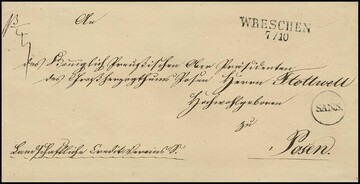 An
WRESCHEN
7/10
des Königlich Preußischen Ober Präsidenten
des Großherzogthums Posen Herrn Flottwell
Hochwohlgeboren
zu
SANN
Posen.
Landschaftliche Credit-Vereins S.